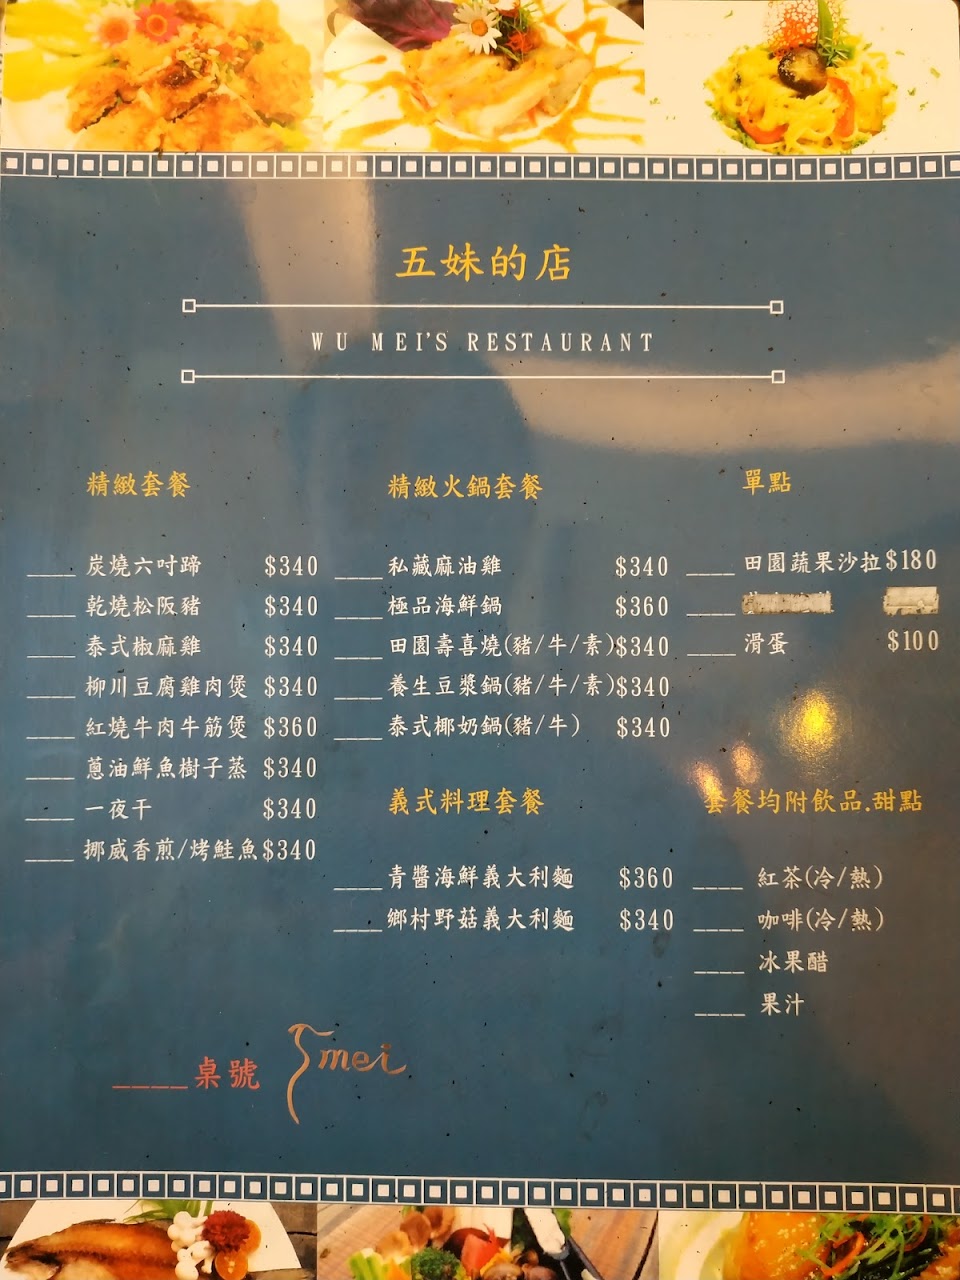 五妹的店
WU MEI'S RESTAURANT
精緻套餐
____ 炭燒六吋蹄 $340
____ 乾燒松阪豬 $340
____ 泰式椒麻雞 $340
____ 柳川豆腐雞肉煲 $340
____ 紅燒牛肉牛筋煲 $360
____ 蔥油鮮魚樹子蒸 $340
____ 一夜干 $340
____ 挪威香煎/烤鮭魚 $340
精緻火鍋套餐
____ 私藏麻油雞 $340
____ 極品海鮮鍋 $360
____ 田園壽喜燒(豬/牛/素) $340
____ 養生豆漿鍋(豬/牛/素) $340
____ 泰式椰奶鍋(豬/牛) $340
義式料理套餐
____ 青醬海鮮義大利麵 $360
____ 鄉村野菇義大利麵 $340
單點
____ 田園蔬果沙拉 $180
____ 滑蛋 $100
套餐均附飲品.甜點
____ 紅茶(冷/熱)
____ 咖啡(冷/熱)
____ 冰果醋
____ 果汁
____桌號
5mei